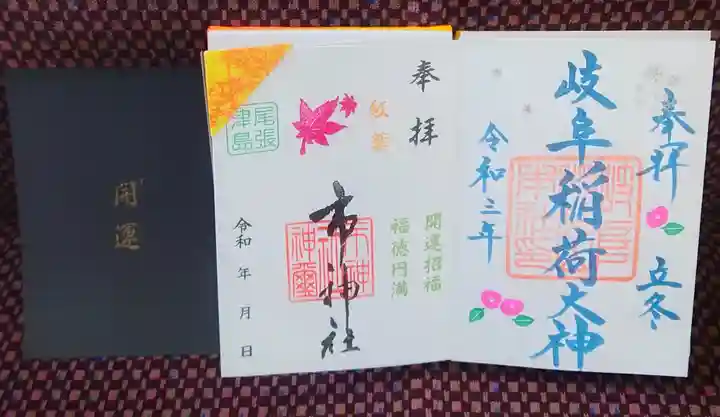 奉拝
立冬
岐阜稲荷大神
令和三年
奉拝
紅葉
開運招福
福徳円満
市神社
市神社
神璽
尾張
津島
令和 年 月 日
開運